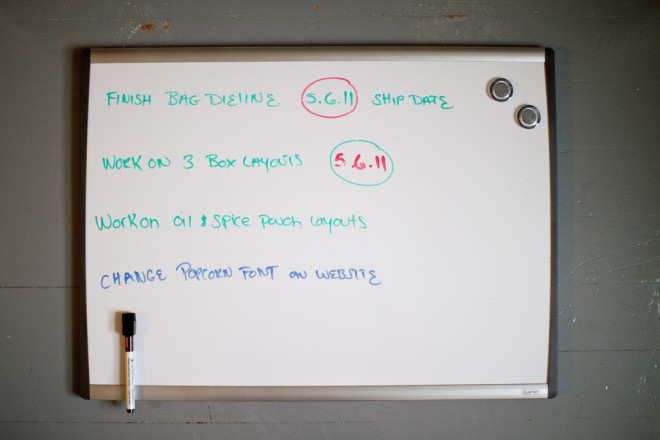 FINISH BAG DIELINE 5.6.11 SHIP DATE
WORK ON 3 BOX LAYOUTS 5.6.11
Work on oil & Spice Pouch Layouts
CHANGE POPCORN FONT ON WEBSITE